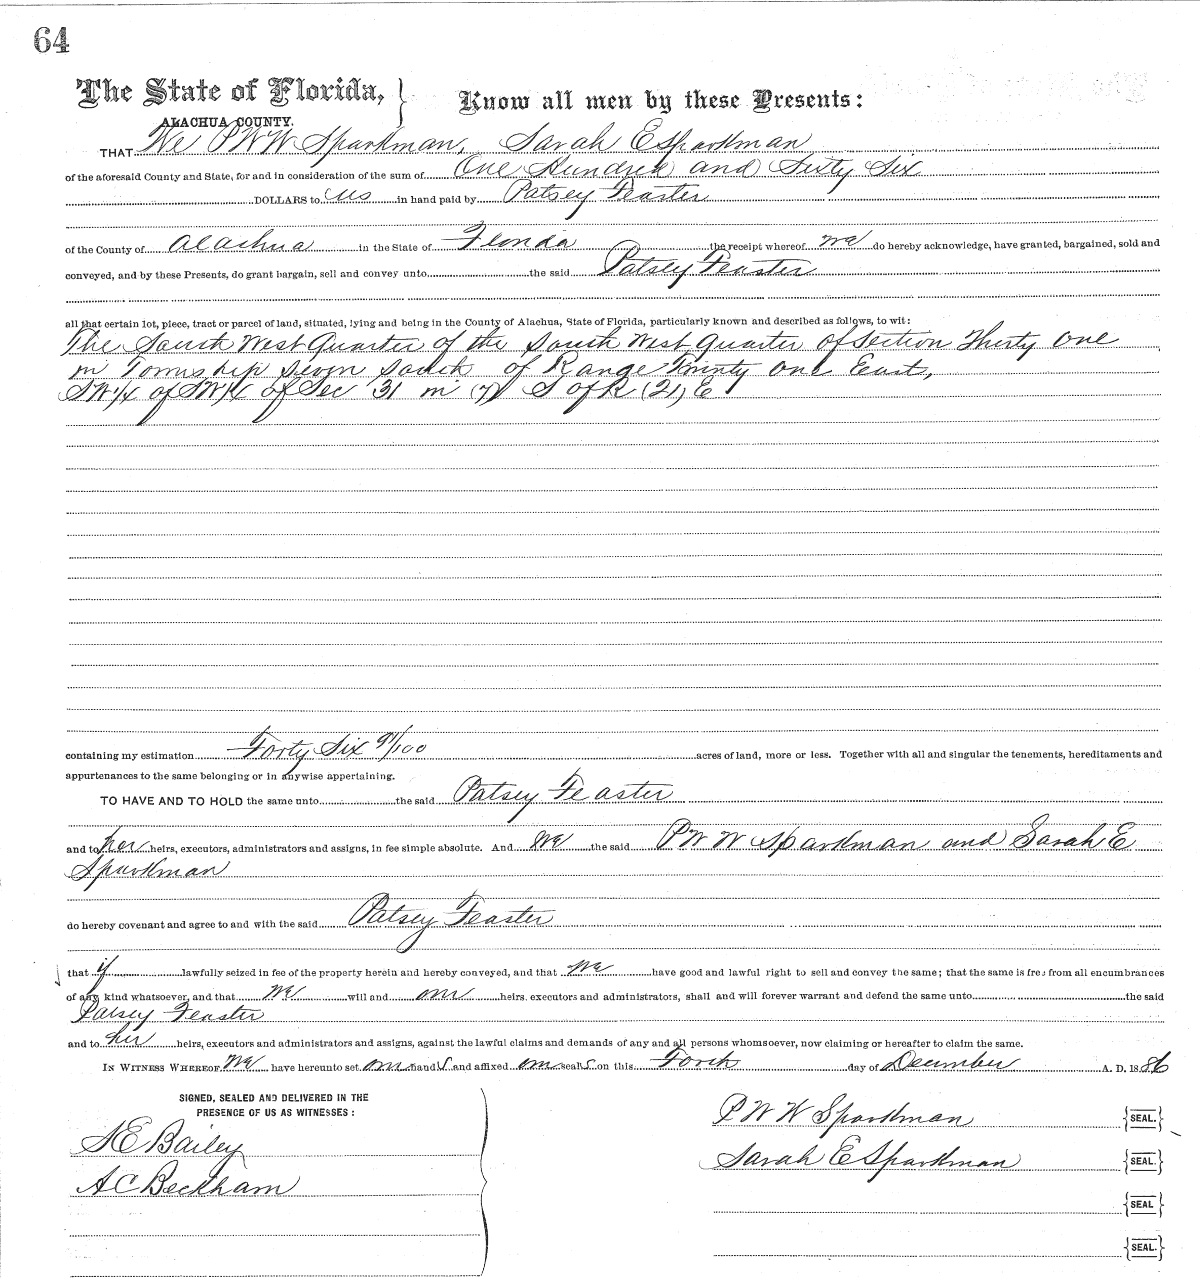 64
The State of Florida, } Know all men by these Presents:
ALACHUA COUNTY.
THAT We P W W Sparkman, Sarah E Sparkman
of the aforesaid County and State, for and in consideration of the sum of One Hundred and Sixty Six
DOLLARS to us in hand paid by Patsey Feaster
of the County of Alachua in the State of Florida the receipt whereof we do hereby acknowledge, have granted, bargained, sold and
conveyed, and by these Presents, do grant bargain, sell and convey unto the said Patsey Feaster
all that certain lot, piece, tract or parcel of land, situated, lying and being in the County of Alachua, State of Florida, particularly known and described as follows, to wit:
The South West Quarter of the South West Quarter of Section Thirty One
in Township Seven South of Range Twinty One East,
SW 1/4 of SW 1/4 of Sec 31 in (7) S of R (21) E
containing my estimation Forty Six 91/100 acres of land, more or less. Together with all and singular the tenements, hereditaments and
appurtenances to the same belonging or in anywise appertaining.
TO HAVE AND TO HOLD the same unto the said Patsey Feaster
and to her heirs, executors, administrators and assigns, in fee simple absolute. And we the said P W W Sparkman and Sarah E
Sparkman
do hereby covenant and agree to and with the said Patsey Feaster
that if lawfully seized in fee of the property herein and hereby conveyed, and that we have good and lawful right to sell and convey the same; that the same is free from all encumbrances
of any kind whatsoever, and that we will and our heirs, executors and administrators, shall and will forever warrant and defend the same unto the said
Patsey Feaster
and to her heirs, executors and administrators and assigns, against the lawful claims and demands of any and all persons whomsoever, now claiming or hereafter to claim the same.
IN WITNESS WHEREOF, We have hereunto set our hands and affixed our seals on this Forth day of December A. D. 1886
SIGNED, SEALED AND DELIVERED IN THE
PRESENCE OF US AS WITNESSES:
P W W Sparkman {SEAL.}
S E Bailey
Sarah E Sparkman {SEAL.}
A C Beckham
{SEAL}
{SEAL.}